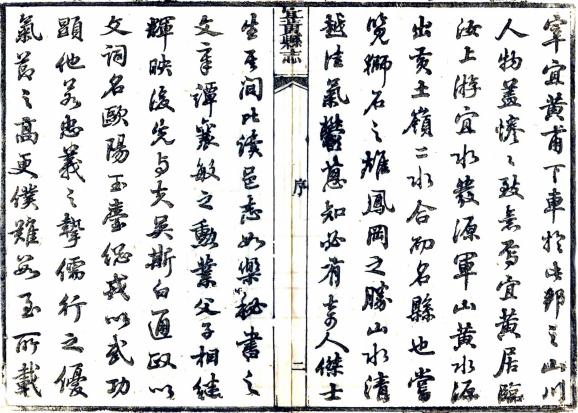 宰宜黃甫下車於此邦之山川
人物蓋惓惓致意焉宜黃居臨
汝上游宜水發源軍山黃水源
出黃土嶺二水合而名縣也嘗
覽獅石之雄鳳岡之勝山水清
越佳氣鬱葱知必有奇人傑士
宜黃縣志
序
二
生其間比讀邑志如樂秘書之
文章譚襄敏之勳業父子相繼
輝映後先與夫吳斯白通政以
文詞名歐陽玉總戎以武功
顯他若忠義之摯儒行之優
氣節之高更僕難數至所載